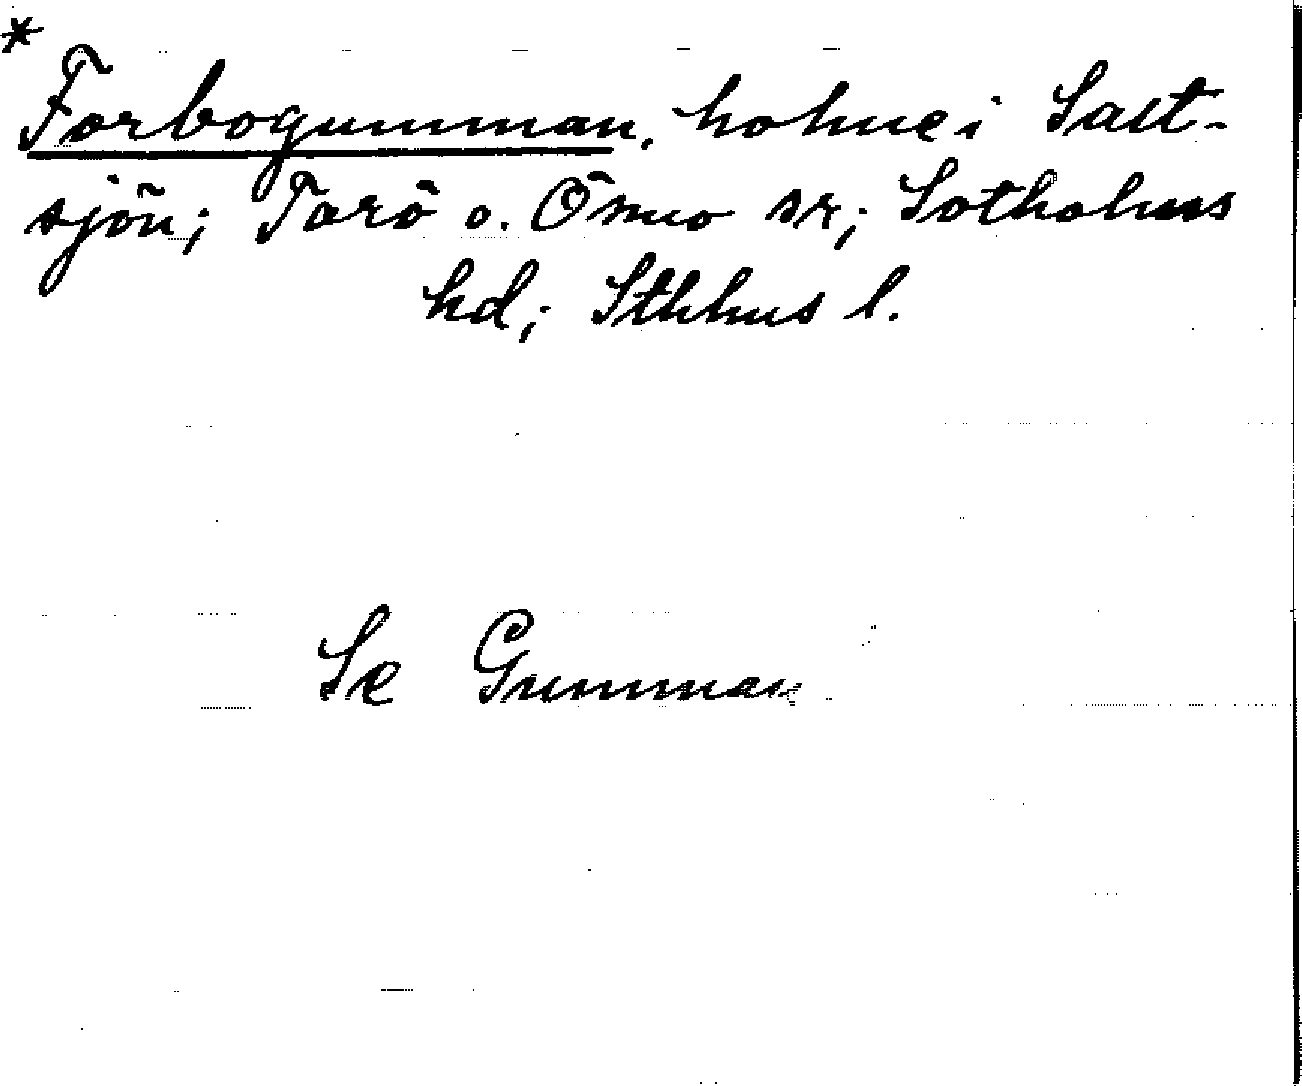 *
Forbogumman, holme i Salt-
sjön; Torö o. Ösmo sr; Sotholms
hd; Sthlms l.
Se Gumman